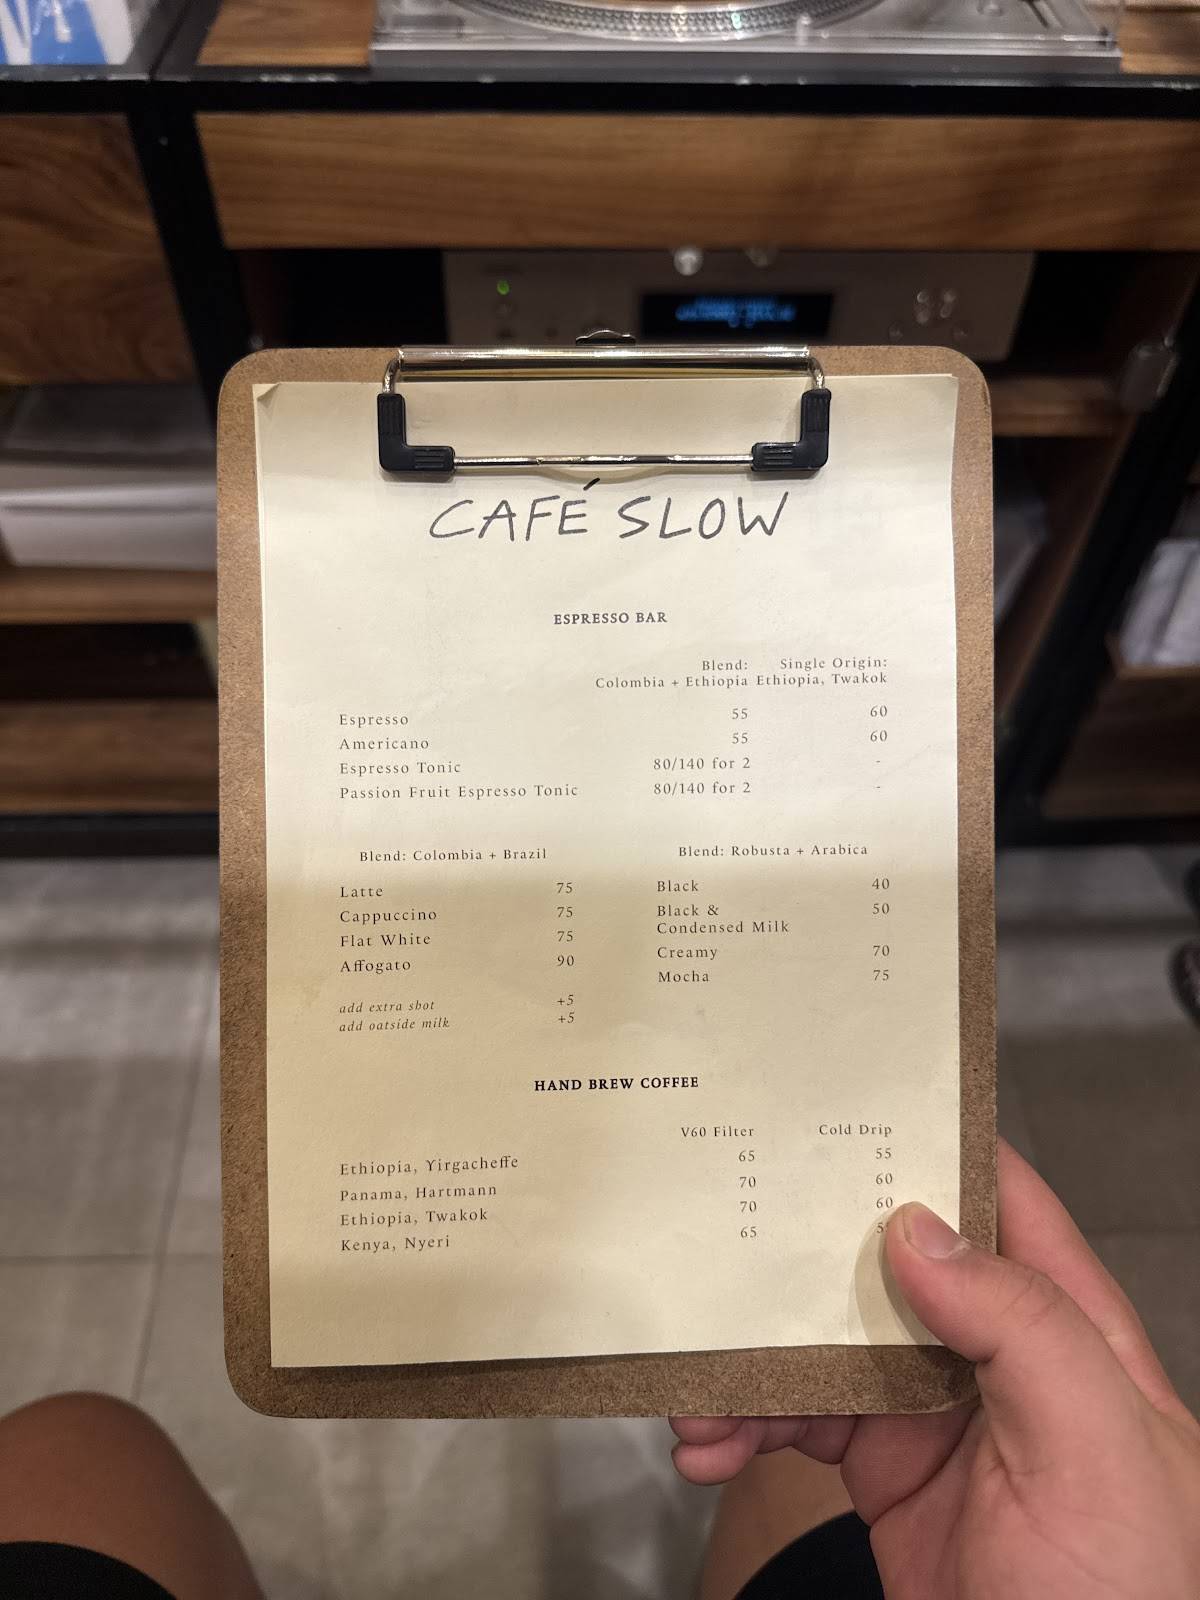 CAFÉ SLOW
ESPRESSO BAR
Blend: Single Origin:
Colombia + Ethiopia Ethiopia, Twakok
Espresso 55 60
Americano 55 60
Espresso Tonic 80/140 for 2 -
Passion Fruit Espresso Tonic 80/140 for 2 -
Blend: Colombia + Brazil
Latte 75
Cappuccino 75
Flat White 75
Affogato 90
add extra shot +5
add oatside milk +5
Blend: Robusta + Arabica
Black 40
Black & 50
Condensed Milk
Creamy 70
Mocha 75
HAND BREW COFFEE
V60 Filter Cold Drip
Ethiopia, Yirgacheffe 65 55
Panama, Hartmann 70 60
Ethiopia, Twakok 70 60
Kenya, Nyeri 65